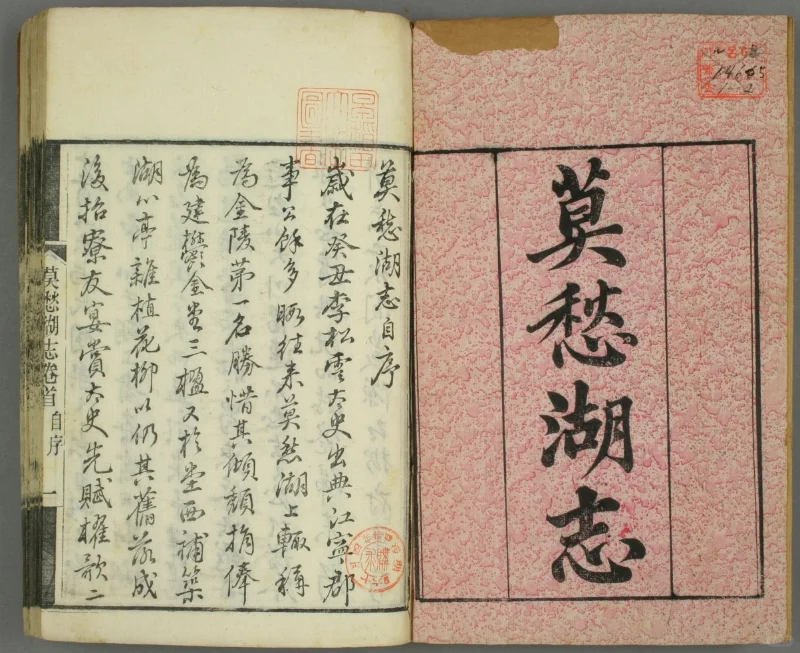 莫愁湖志
莫愁湖志自序
歲在癸丑李松雲太史出典江寧郡
事公餘多暇往來莫愁湖上輒稱
為金陵第一名勝惜其傾頹捐俸
為建鬱金堂三楹又於堂西補築
湖心亭雜植花柳以仍其舊落成
後招寮友宴賞太史先賦櫂歌二
莫愁湖志卷首
自序
一